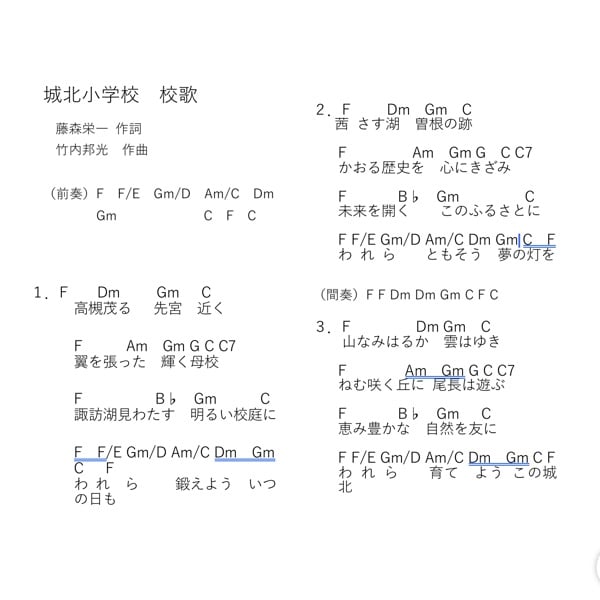 城北小学校　校歌
藤森栄一 作詞
竹内邦光　作曲
（前奏）F　F/E　Gm/D　Am/C　Dm
Gm　C　F　C
1．F　Dm　Gm　C
高槻茂る　先宮　近く
F　Am　Gm G C C7
翼を張った　輝く母校
F　B♭　Gm　C
諏訪湖見わたす　明るい校庭に
F　F/E Gm/D Am/C Dm　Gm
C　F
わ れ ら　鍛えよう　いつ
の日も
2．F　Dm　Gm　C
茜 さす湖　曽根の跡
F　Am　Gm G　C C7
かおる歴史を　心にきざみ
F　B♭　Gm　C
未来を開く　このふるさとに
F F/E Gm/D Am/C Dm Gm C　F
わ れ ら　ともそう　夢の灯を
（間奏）F F Dm Dm Gm C F C
3．F　Dm Gm　C
山なみはるか　雲はゆき
F　Am　Gm G C C7
ねむ咲く丘に 尾長は遊ぶ
F　B♭　Gm　C
恵み豊かな　自然を友に
F F/E Gm/D Am/C Dm　Gm C F
わ れ ら　育て　よう この城
北